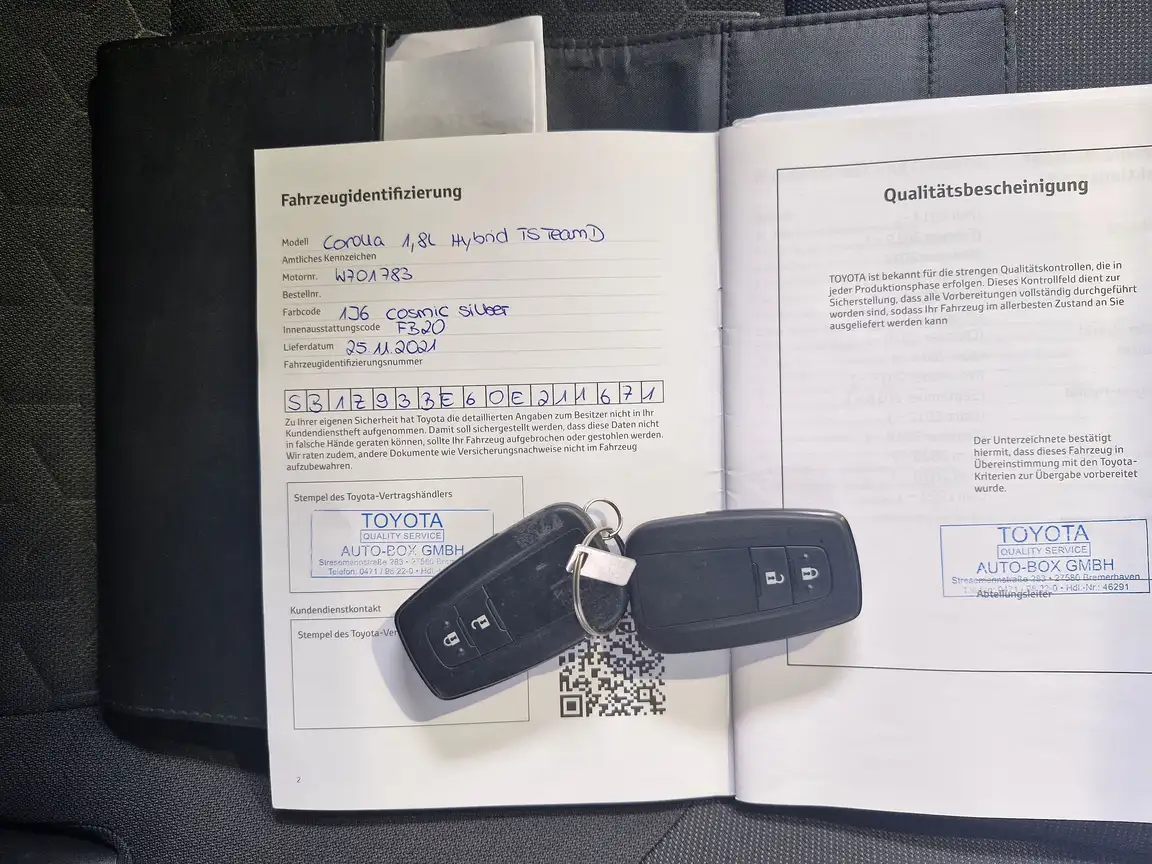 Fahrzeugidentifizierung
Modell Corolla 1,8L Hybrid TS TeamD
Amtliches Kennzeichen
Motornr. W701783
Bestellnr.
Farbcode 1J6 cosmic silber
Innenausstattungscode FB20
Lieferdatum 25.11.2021
Fahrzeugidentifizierungsnummer
SB1Z93BE60E211671
Zu Ihrer eigenen Sicherheit hat Toyota die detaillierten Angaben zum Besitzer nicht in Ihr
Kundendienstheft aufgenommen. Damit soll sichergestellt werden, dass diese Daten nicht
in falsche Hände geraten können, sollte Ihr Fahrzeug aufgebrochen oder gestohlen werden.
Wir raten zudem, andere Dokumente wie Versicherungsnachweise nicht im Fahrzeug
aufzubewahren.
Stempel des Toyota-Vertragshändlers
TOYOTA
QUALITY SERVICE
AUTO-BOX GMBH
Stresemannstraße 283 • 27580 Bre
Telefon: 0471 / 98 22-0 • Hdl
Kundendienstkontakt
Stempel des Toyota-Ver
2
Qualitätsbescheinigung
TOYOTA ist bekannt für die strengen Qualitätskontrollen, die in
jeder Produktionsphase erfolgen. Dieses Kontrollfeld dient zur
Sicherstellung, dass alle Vorbereitungen vollständig durchgeführt
worden sind, sodass Ihr Fahrzeug im allerbesten Zustand an Sie
ausgeliefert werden kann
Der Unterzeichnete bestätigt
hiermit, dass dieses Fahrzeug in
Übereinstimmung mit den Toyota-
Kriterien zur Übergabe vorbereitet
wurde.
TOYOTA
QUALITY SERVICE
AUTO-BOX GMBH
Stresemannstraße 283 • 27580 Bremerhaven
0471 / 98 22-0 • Hdl.-Nr.: 46291
Abteilungsleiter